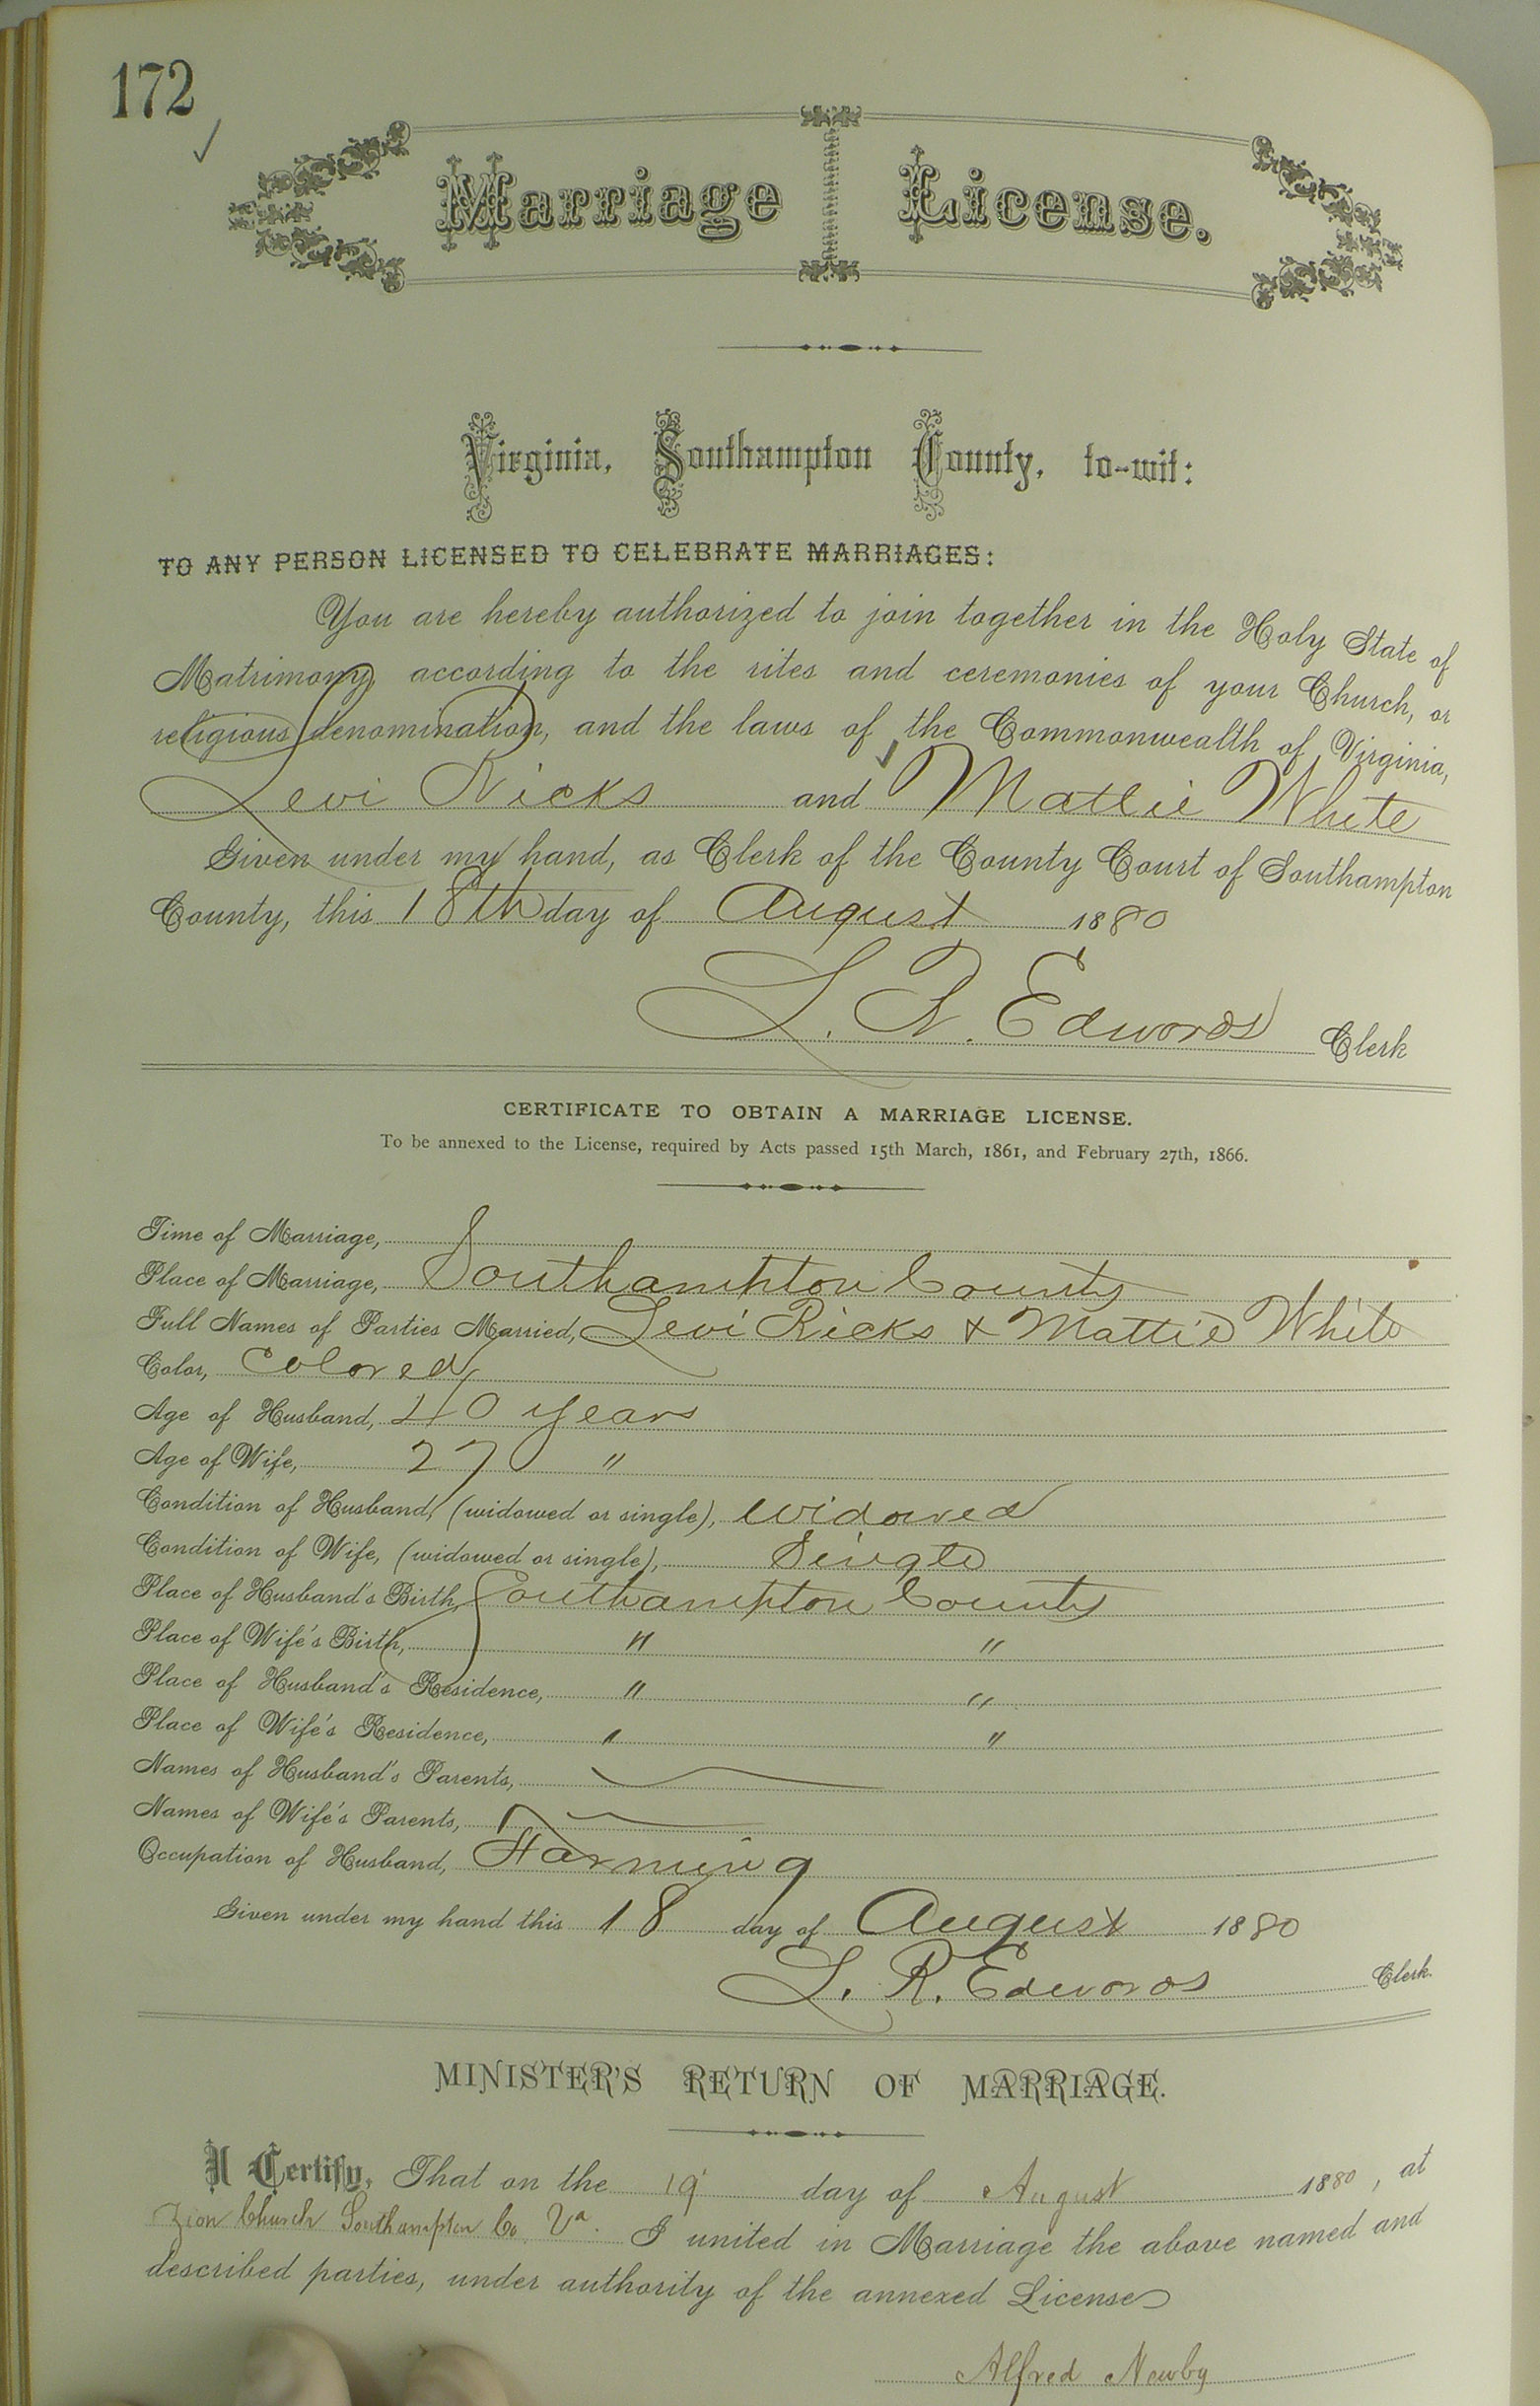 172
Marriage License.
Virginia, Southampton County, to-wit:
TO ANY PERSON LICENSED TO CELEBRATE MARRIAGES:
You are hereby authorized to join together in the Holy State of
Matrimony, according to the rites and ceremonies of your Church, or
religious denomination, and the laws of the Commonwealth of Virginia,
Levi Ricks and Mattie White
Given under my hand, as Clerk of the County Court of Southampton
County, this 18th day of August 1880
L. R. Edwards Clerk
CERTIFICATE TO OBTAIN A MARRIAGE LICENSE.
To be annexed to the License, required by Acts passed 15th March, 1861, and February 27th, 1866.
Time of Marriage,
Place of Marriage, Southampton County
Full Names of Parties Married, Levi Ricks & Mattie White
Color, Colored
Age of Husband, 40 years
Age of Wife, 27 "
Condition of Husband, (widowed or single), widowed
Condition of Wife, (widowed or single), Single
Place of Husband's Birth, Southampton County
Place of Wife's Birth, " "
Place of Husband's Residence, " "
Place of Wife's Residence, " "
Names of Husband's Parents,
Names of Wife's Parents,
Occupation of Husband, Farming
Given under my hand this 18 day of August 1880
L. R. Edwards Clerk.
MINISTER'S RETURN OF MARRIAGE.
I Certify, That on the 19 day of August 1880, at
Zion Church Southampton Co. Va. I united in Marriage the above named and
described parties, under authority of the annexed License
Alfred Newby